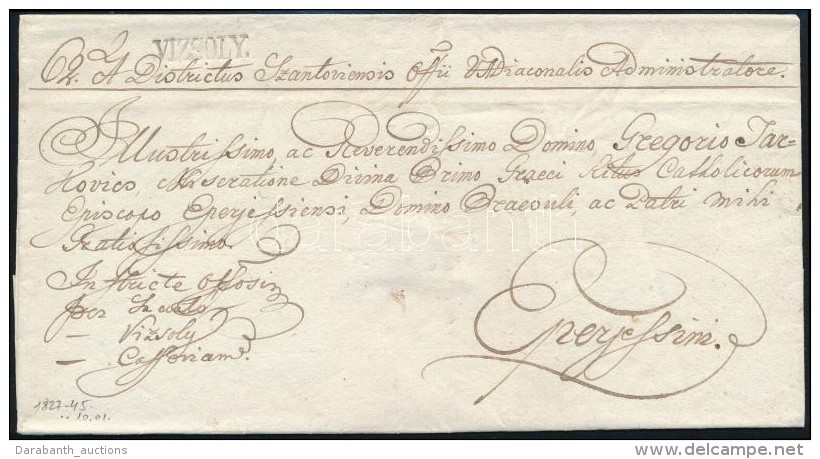 VIZSOLY.
A Districtus Szantoviensis Offii VADiaconalis Administratore.
Illustrissimo, ac Reverendissimo Domino, Gregorio Tar-
kovics, Miseratione Divina Primo Graeci Ritus Catholicorum
Episcopo Eperjessiensi, Domino Praesuli, ac Patri mihi
Gratiosissimo.
In stricte
per Szanto
— Vizsoly
— Cassoviam.
Eperjessini.
1827-45-
10.01.
darabanth
Darabanth_auctions
delcampe.net